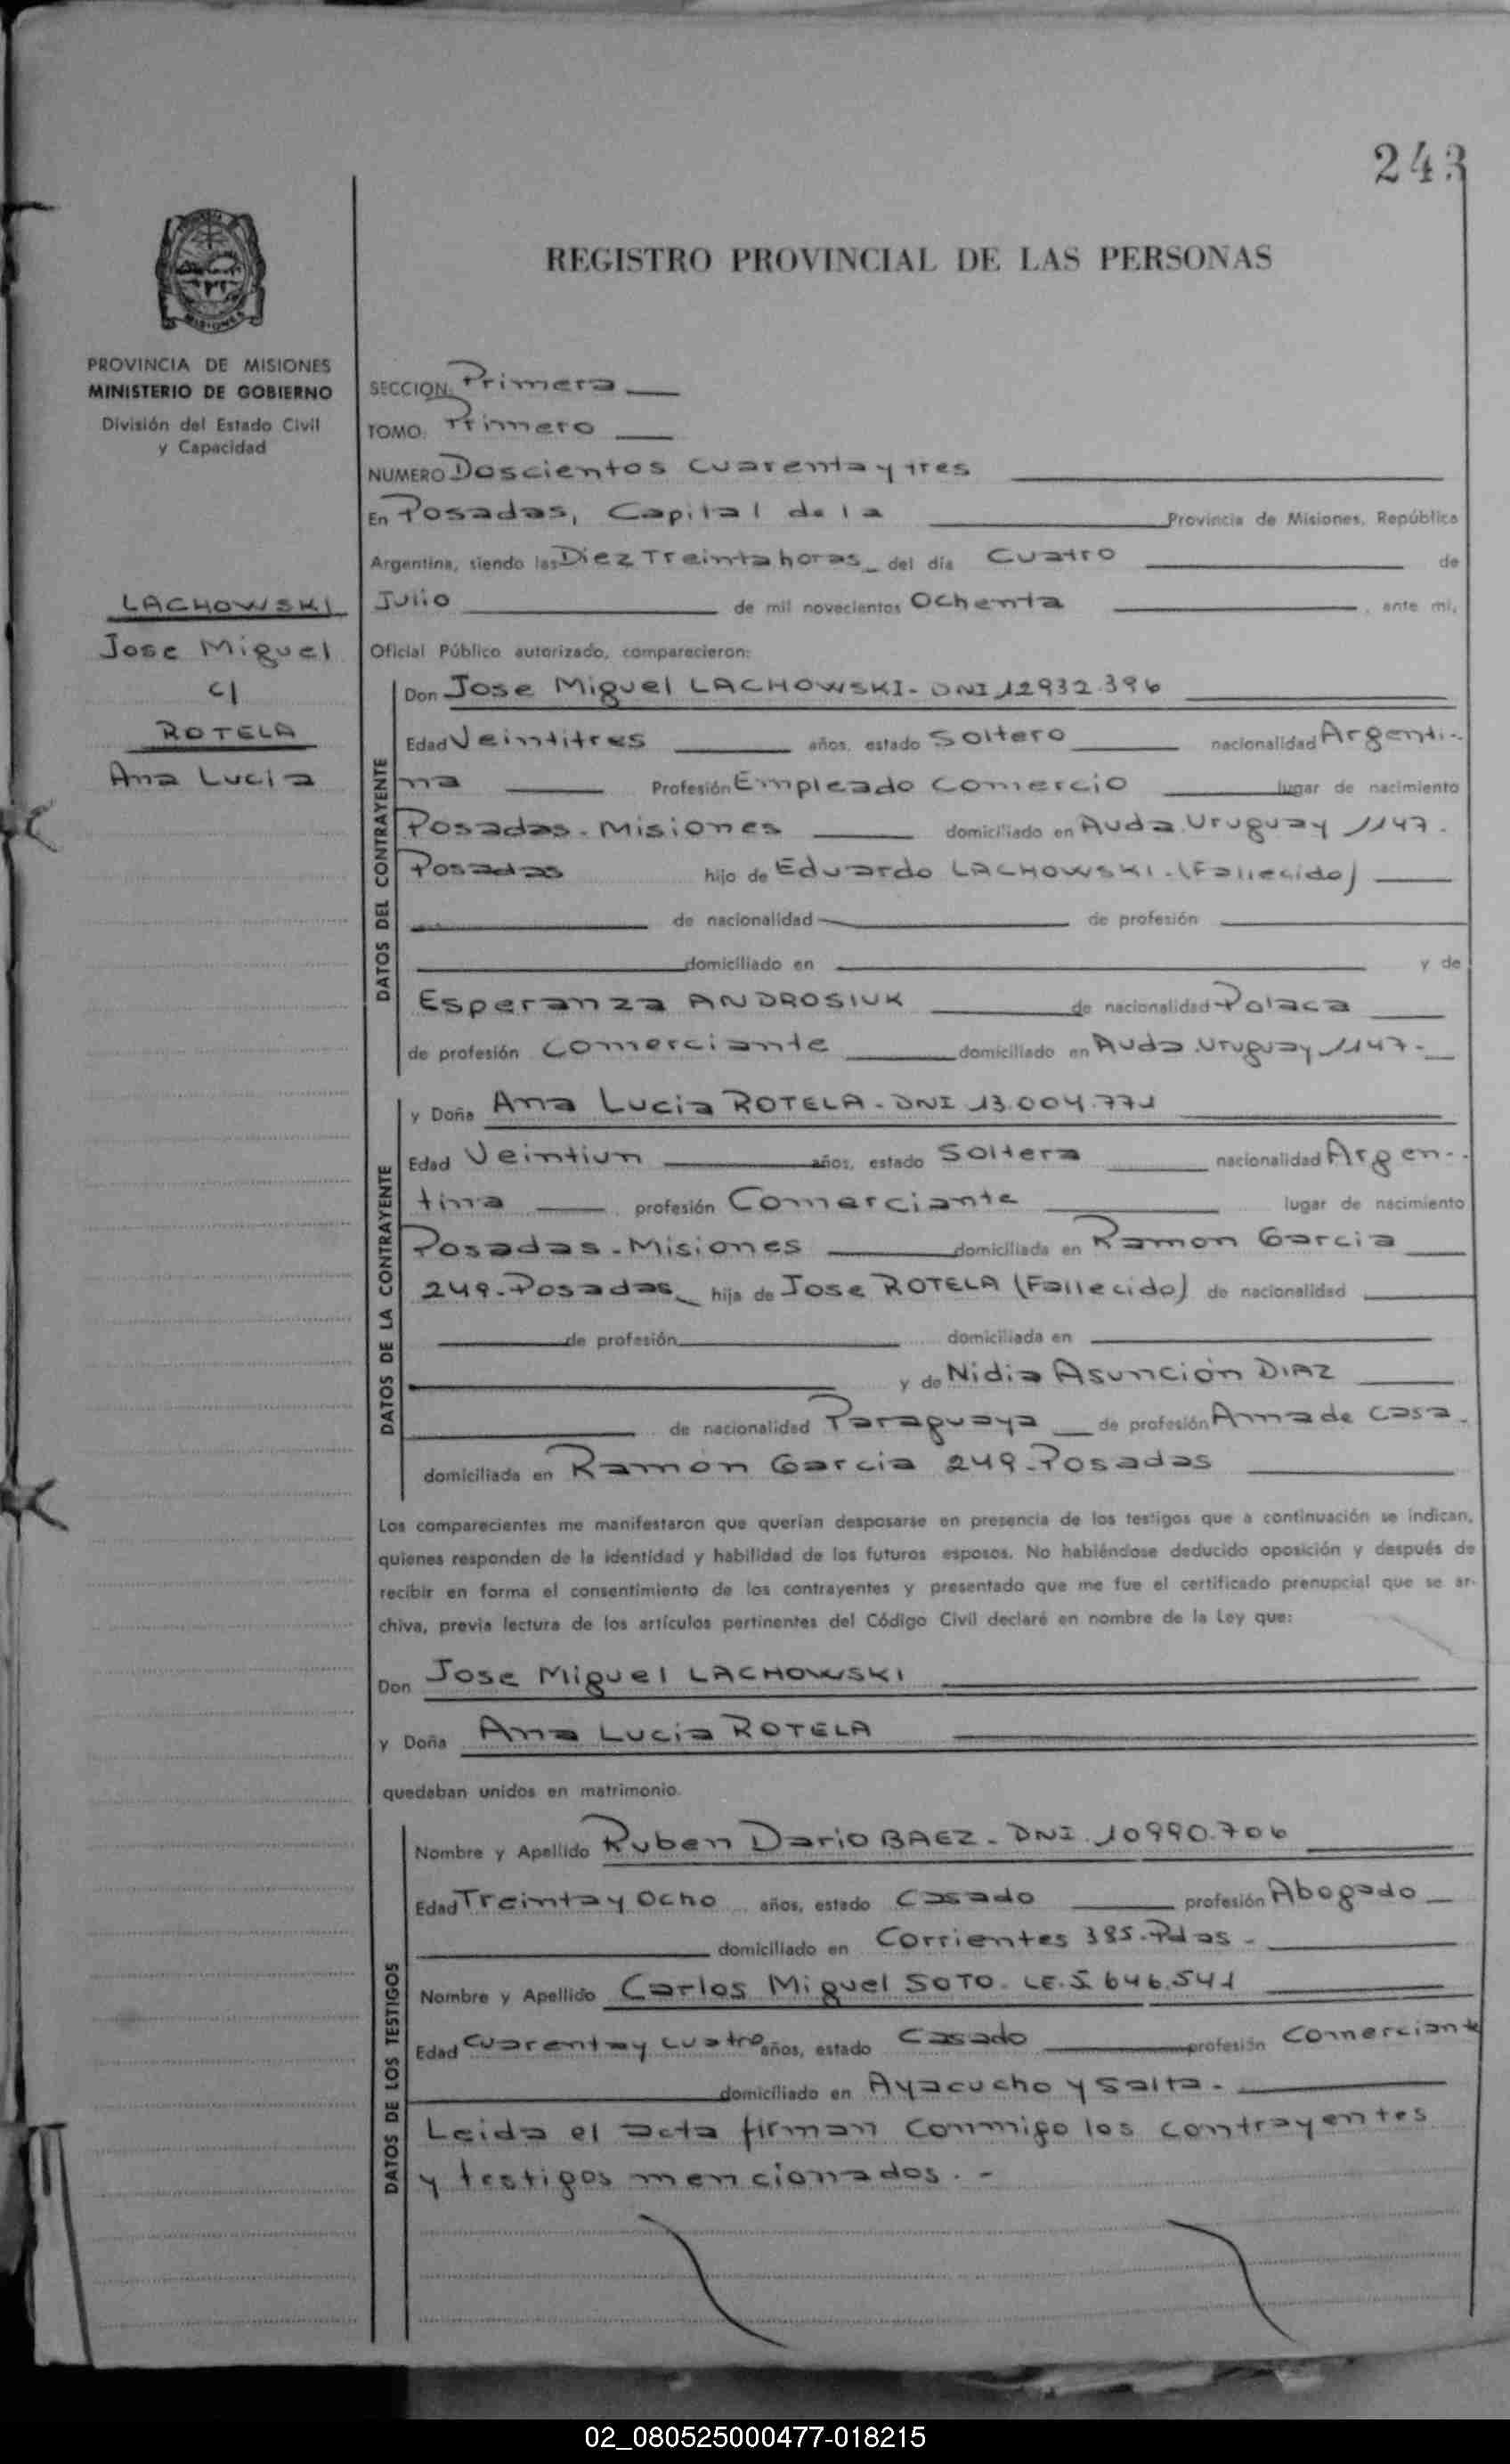 243
REGISTRO PROVINCIAL DE LAS PERSONAS
MISIONES
PROVINCIA DE MISIONES
MINISTERIO DE GOBIERNO
División del Estado Civil
y Capacidad
LACHOWSKI
Jose Miguel
c/
ROTELA
Ana Lucia
SECCION: Primera
TOMO: Primero
NUMERO Doscientos cuarenta y tres
En Posadas, Capital de la Provincia de Misiones, República
Argentina, siendo las Diez Treinta horas del día Cuatro de
Julio de mil novecientos Ochenta, ante mi,
Oficial Público autorizado, comparecieron:
DATOS DEL CONTRAYENTE
Don Jose Miguel LACHOWSKI - DNI 12932.396
Edad Veintitres años, estado Soltero nacionalidad Argenti-
na Profesión Empleado Comercio lugar de nacimiento
Posadas - Misiones domiciliado en Avda. Uruguay 1147.
Posadas hijo de Eduardo LACHOWSKI. (Fallecido)
de nacionalidad de profesión
domiciliado en y de
Esperanza ANDROSIUK de nacionalidad Polaca
de profesión Comerciante domiciliado en Avda. Uruguay 1147-
DATOS DE LA CONTRAYENTE
y Doña Ana Lucia ROTELA - DNI 13.004.771
Edad Veintiun años, estado Soltera nacionalidad Argen-
tina profesión Comerciante lugar de nacimiento
Posadas - Misiones domiciliada en Ramon Garcia
249 - Posadas hija de Jose ROTELA (Fallecido) de nacionalidad
de profesión domiciliada en
y de Nidia Asunción DIAZ
de nacionalidad Paraguaya de profesión Ama de casa.
domiciliada en Ramón Garcia 249 - Posadas
Los comparecientes me manifestaron que querían desposarse en presencia de los testigos que a continuación se indican,
quienes responden de la identidad y habilidad de los futuros esposos. No habiéndose deducido oposición y después de
recibir en forma el consentimiento de los contrayentes y presentado que me fue el certificado prenupcial que se ar-
chiva, previa lectura de los artículos pertinentes del Código Civil declaré en nombre de la Ley que:
Don Jose Miguel LACHOWSKI
y Doña Ana Lucia ROTELA
quedaban unidos en matrimonio.
DATOS DE LOS TESTIGOS
Nombre y Apellido Ruben Dario BAEZ - DNI. 10990.706
Edad Treinta y Ocho años, estado Casado profesión Abogado
domiciliado en Corrientes 385. Pdas -
Nombre y Apellido Carlos Miguel SOTO. LE. 5.646.541
Edad cuarenta y cuatro años, estado Casado profesión Comerciante
domiciliado en Ayacucho y Salta.
Leida el acta firman conmigo los contrayentes
y testigos mencionados. -
02_080525000477-018215